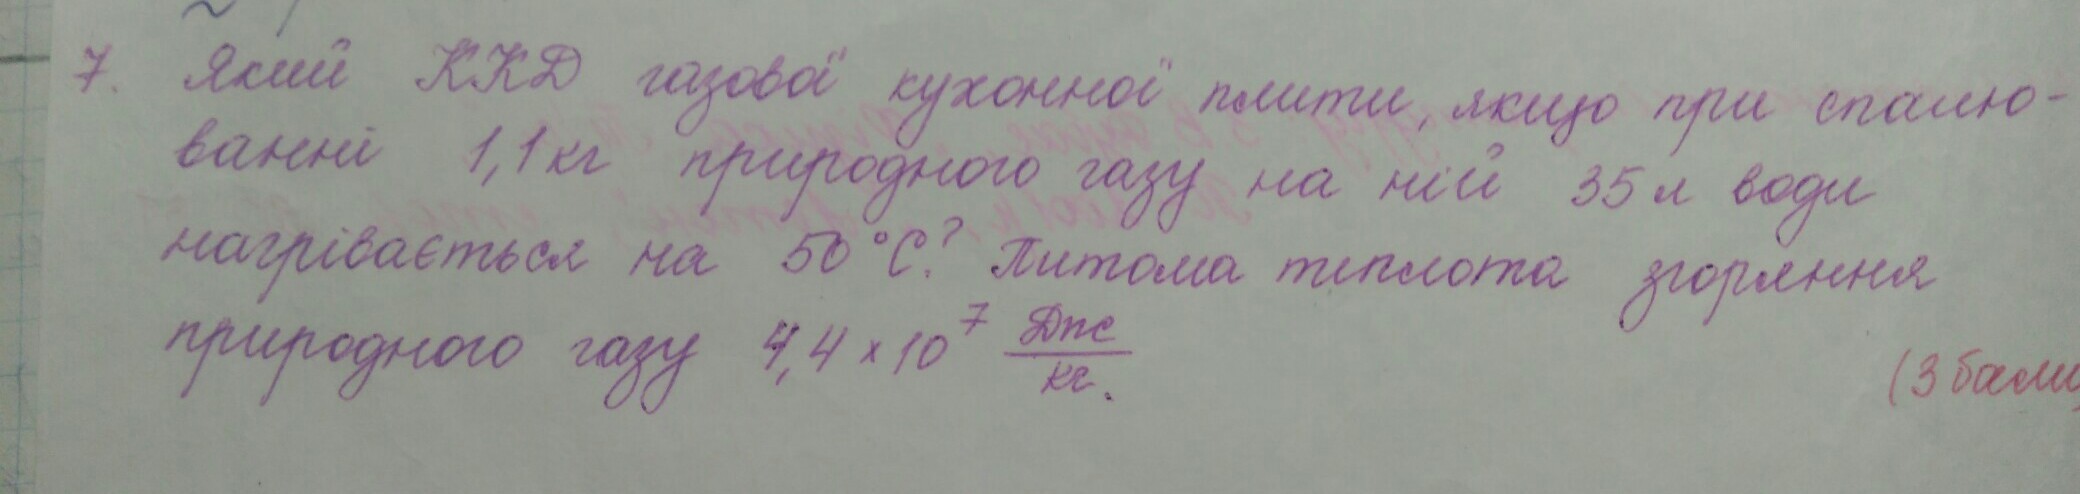 7. Який ККД газової кухонної плити, якщо при спалю-
ванні 1,1 кг природного газу на ній 35 л води
нагрівається на 50 °С? Питома теплота згоряння
природного газу 4,4 × 10⁷ Дж/кг.
(3 бали)